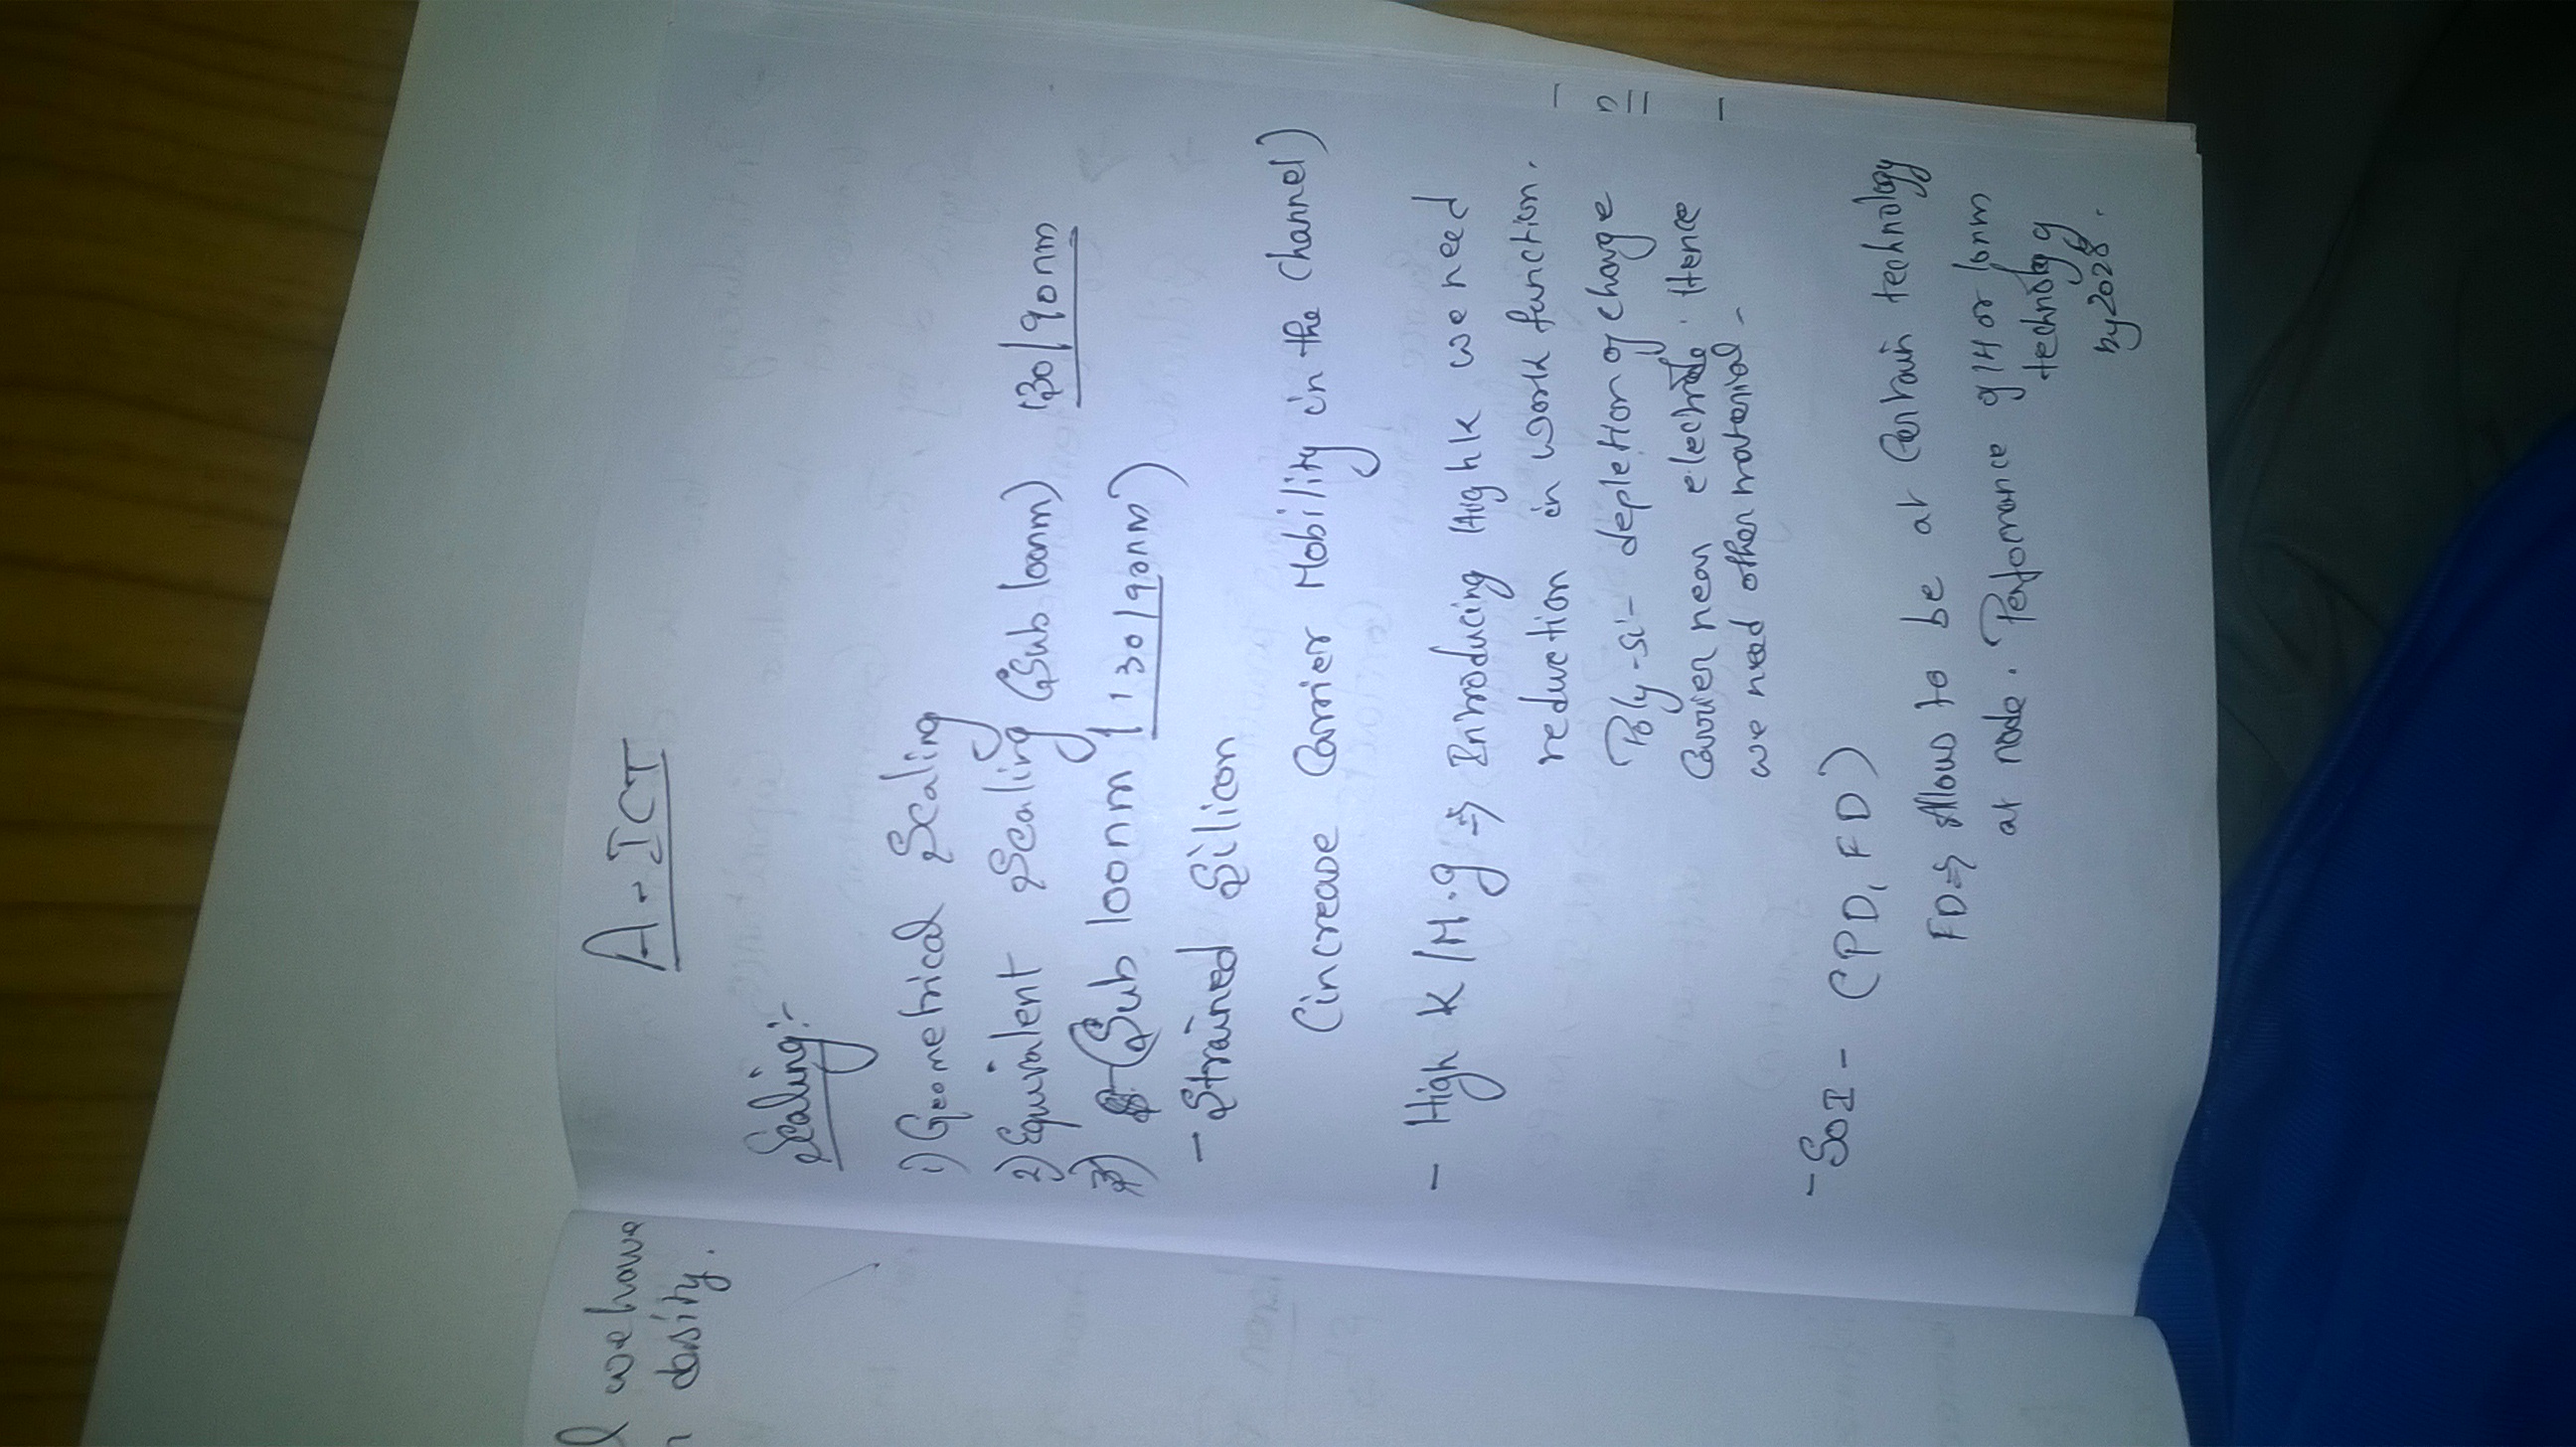 we have
density.
A-ICT
Scaling:-
1) Geometrical Scaling
2) Equivalent Scaling (Sub 100nm) 130/90nm
3) (Sub 100nm (130/90nm)
- Strained Silicon
(increase Carrier Mobility in the Channel)
- High K/M.g ⇒ Introducing High k we need
reduction in work function.
Poly-si - depletion of charge
Carrier near electrode. Hence
we need other material -
- SOI - (PD, FD)
FD ⇒ Allows to be at Certain technology
at node. Performance of 14 or 10nm
technology
by 2028.